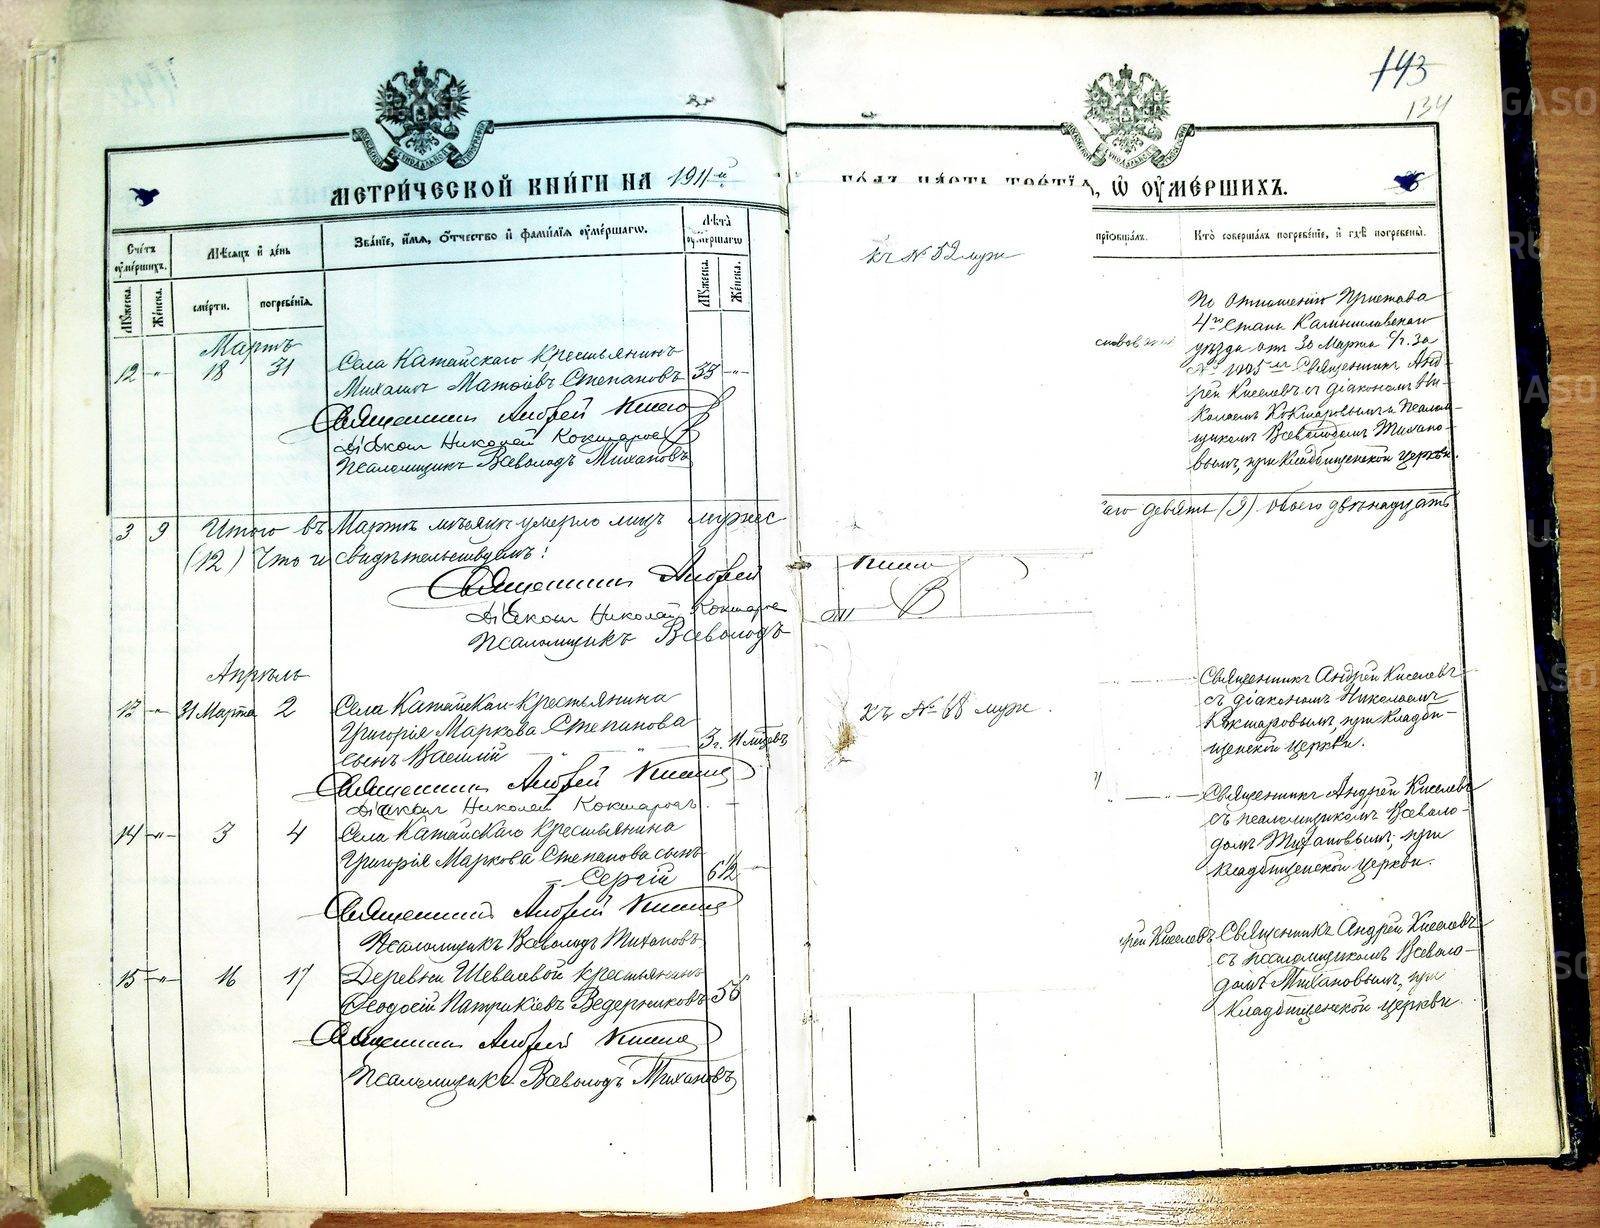 143
134
МЕТРИ́ЧЕСКОЙ КНИ́ГИ НА 1911й
ГО́ДЪ, ЧА́СТЬ ТРЕ́ТІѦ, Ѡ ОУМЕ́РШИХЪ.
Сче́тъ оуме́ршихъ.
Мѣ́сяцъ и де́нь
Зва́нїе, и́мя, ѻ́тчество и фами́лїя оуме́ршагѡ.
Лѣ́та оуме́ршагѡ
Му́жеска.
Же́нска.
сме́рти.
погребе́нїя.
Му́жеска.
Же́нска.
прїобща́лъ.
Кто̀ соверша́лъ погребе́нїе, и гдѣ̀ погребены̀.
Мартъ
12 -"- 18 31 Села Катайскаго крестьянинъ
Михаилъ Матѳіевъ Степановъ 33 -"-
Священникъ Андрей Киселевъ
Діаконъ Николай Кокшаровъ
Псаломщикъ Всеволодъ Тихановъ
3 9 Итого въ Мартѣ мѣсяцѣ умерло лицъ мужес
(12) Что и свидѣтельствуемъ:
Священникъ Андрей
Діаконъ Николай Кокшаров
Псаломщикъ Всеволодъ
Апрѣль
13 -"- 31 Марта 2 Села Катайскаго крестьянина
Григорія Маркова Степанова
сынъ Василій 3 г. 11 мѣсяцевъ
Священникъ Андрей Киселевъ
Діаконъ Николай Кокшаровъ.
14 -"- 3 4 Села Катайскаго крестьянина
Григорія Маркова Степанова сынъ
Сергій 6 1/2
Священникъ Андрей Киселевъ
Псаломщикъ Всеволодъ Тихановъ
15 -"- 16 17 Деревни Шевелевой крестьянинъ
Ѳеодосій Патрикіевъ Ведерниковъ 56
Священникъ Андрей Киселевъ
Псаломщикъ Всеволодъ Тихановъ
къ № 52 муж
По отношенію Пристава
4го стана Камышловскаго
уѣзда отъ 30 Марта с/г. за
№ 1105 Священникъ Анд-
рей Киселевъ съ діакономъ Ни-
колаемъ Кокшаровымъ и псалом-
щикомъ Всеволодомъ Тихано-
вымъ, при кладбищенской церкви.
его девять (9) обоего двѣнадцать
къ № 68 муж.
Священникъ Андрей Киселевъ
съ діакономъ Николаемъ
Кокшаровымъ при кладби-
щенской церкви.
Священникъ Андрей Киселевъ
съ псаломщикомъ Всеволо-
домъ Тихановымъ, при
кладбищенской церкви.
рей Киселевъ Священникъ Андрей Киселевъ
съ псаломщикомъ Всеволо-
домъ Тихановымъ, при
кладбищенской церкви.
GASO
RU
GASO